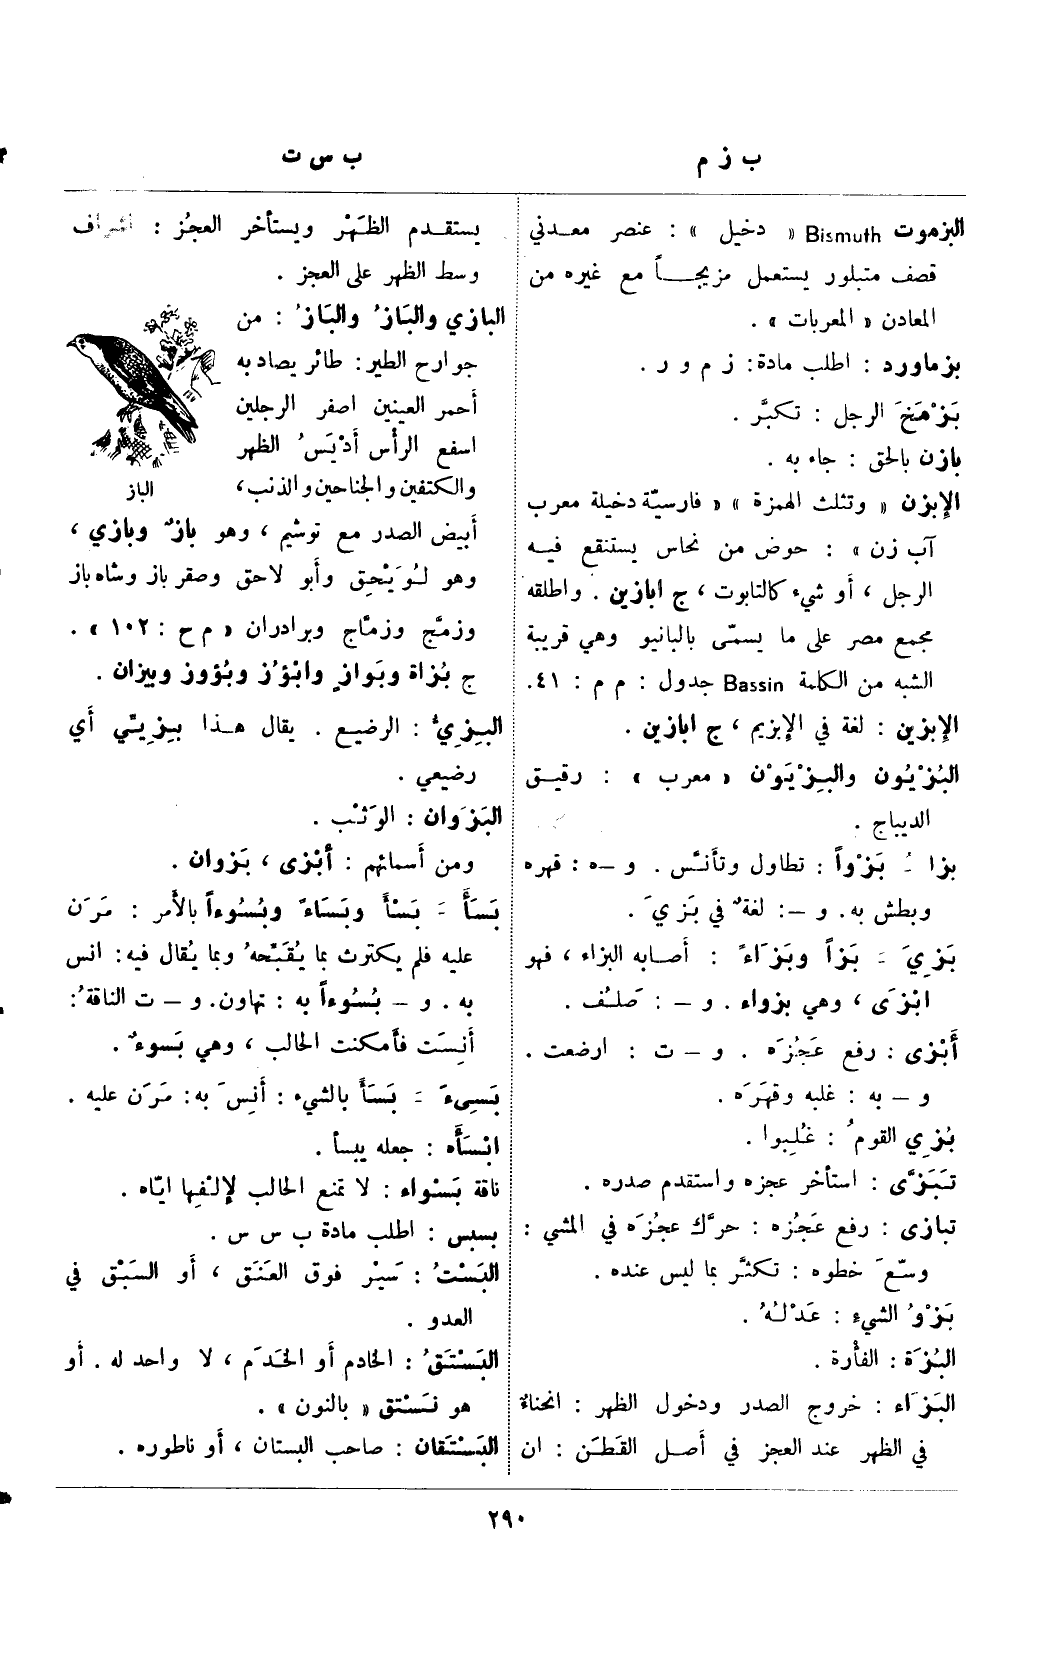 ب ز م
ب س ت
البزموت Bismuth « دخيل » : عنصر معدني
قصف متبلور يستعمل مزيجاً مع غيره من
المعادن « المعربات » .
بزماورد : اطلب مادة: ز م و ر .
بَزْمَخَ الرجل : تكبَّر .
بازن بالحق : جاء به .
الإبزن « وتثلث الهمزة » « فارسيّة دخيلة معرب
آب زن » : حوض من نحاس يستنقع فيه
الرجل ، أو شيء كالتابوت ، ج ابازين . واطلقه
مجمع مصر على ما يسمّى بالبانيو وهي قريبة
الشبه من الكلمة Bassin جدول : م م : ٤١.
الإبزين : لغة في الإبزيم ، ج ابازين .
البُزْيُون والبِزْيَوْن « معرب » : رقيق
الديباج .
بزا ـُ بَزْواً : تطاول وتأنَّس . و ـه : قهره
وبطش به. و ـ: لغةٌ في بَزِيَ .
بَزِيَ ـَ بَزاً وبَزَاءً : أصابه البزاء ، فهو
ابْزَى ، وهي بزواء . و ـ : صَلُف .
أَبْزى : رفع عَجُزَه . و ـ ت : ارضعت .
و ـ به : غلبه وقهَرَه .
بُزِي القومُ : غُلِبوا .
تَبَزَّى : استأخر عجزه واستقدم صدره .
تبازى : رفع عَجُزه : حرَّك عجُزَه في المشي :
وسّعَ خطوه : تكثَّر بما ليس عنده .
بَزْوُ الشيء : عَدْلُهُ .
البُزَة : الفأرة .
البَزَاء : خروج الصدر ودخول الظهر : انحناءٌ
في الظهر عند العجز في أصل القَطَن : ان
يستقدم الظَهْر ويستأخر العجُز : اشراف
وسط الظهر على العجز .
البازي والبَازُ والبَازُ : من
جوارح الطير: طائر يصاد به
أحمر العينين اصفر الرجلين
اسفع الرأس أدْبَسُ الظهر
والكتفين والجناحين والذنب،
الباز
أبيض الصدر مع توشيم ، وهو بازٌ وبازي ،
وهو لُوَيْحِق وأبو لاحق وصقر باز وشاه باز
وزمَّج وزمّاج وبرادران « م ح : ١٠٢ » .
ج بُزاة وبَوازٍ وابْؤُز وبُؤوز وبيزان .
البِزِيُ : الرضيع . يقال هذا بِزِيّي أي
رضيعي .
البَزَوان : الوَثْب .
ومن أسمائهم : أبْزى ، بَزوان .
بَسَأَ ـَ بَسْأً وبَسَاءً وبُسُوءاً بالأمر : مَرَن
عليه فلم يكترث بما يُقَبِّحهُ وبما يُقال فيه: انس
به . و ـ بُسُوءاً به : تهاون. و ـ ت الناقةُ:
أنِسَت فأمكنت الحالب ، وهي بَسوءٌ .
بَسِىءَ ـَ بَسَأً بالشيء : أَنِسَ به: مَرَن عليه .
ابْسَأَه : جعله يبسأ .
ناقة بَسْواء : لا تمنع الحالب لإلْفِها ايّاه .
بسبس : اطلب مادة ب س س .
البَسْتُ : سَيْر فوق العَنَق ، أو السَبْق في
العدو .
البَسْتَقُ : الخادم أو الخَدَم ، لا واحد له . أو
هو نَسْتق « بالنون » .
البَسْتَقان : صاحب البستان ، أو ناطوره .
٢٩٠